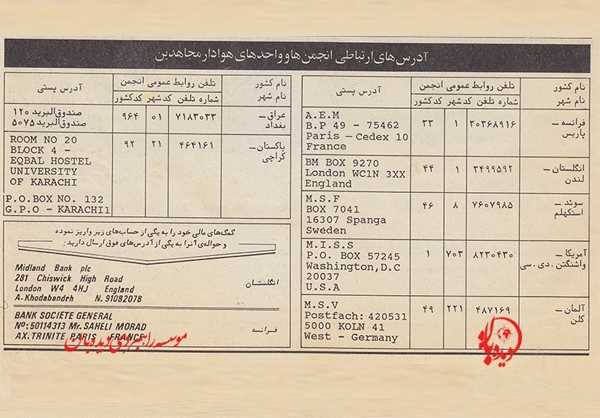 آدرس‌های ارتباطی انجمن‌ها و واحدهای هوادار مجاهدین
نام کشور
نام شهر
تلفن روابط عمومی انجمن
کدکشور کدشهر شماره تلفن
آدرس پستی
فرانسه –
پاریس
۳۳ ۱ ۳۰۳۶۸۹۱۶
A.E.M
B.P 49 - 75462
Paris - Cedex 10
France
انگلستان –
لندن
۴۴ ۱ ۳۴۹۹۵۹۲
BM BOX 9270
London WC1N 3XX
England
سوئد –
استکهلم
۴۶ ۸ ۷۶۰۷۹۸۵
M.S.F
BOX 7041
16307 Spanga
Sweden
آمریکا –
واشنگتن . دی . سی
۱ ۷۰۳ ۸۲۳۰۴۳۰
M.I.S.S
P.O. BOX 57245
Washington,D.C
20037
U.S.A
آلمان –
کلن
۴۹ ۲۲۱ ۴۸۷۱۶۹
M.S.V
Postfach: 420531
5000 KOLN 41
West - Germany
نام کشور
نام شهر
تلفن روابط عمومی انجمن
کدکشور کدشهر شماره تلفن
آدرس پستی
عراق –
بغداد
۹۶۴ ۰۱ ۷۱۸۳۰۳۳
صندوق‌البرید ۱۲۰
صندوق‌البرید ۵۰۷۵
پاکستان –
کراچی
۹۲ ۲۱ ۴۶۴۱۶۱
ROOM NO 20
BLOCK 4 -
EQBAL HOSTEL
UNIVERSITY
OF KARACHI
P.O.BOX NO. 132
G.P.O - KARACHI1
کمک‌های مالی خود را به یکی از حساب‌های زیر واریز نموده
و حواله‌ی آن را به یکی از آدرس‌های فوق ارسال دارید :
انگلستان .
Midland Bank plc
281 Chiswick High Road
London W4 4HJ England
A-Khodabandeh N. 91082078
فرانسه
BANK SOCIÉTÉ GENERAL
Nº: 50114313 Mr. SAHELI MORAD
AX. TRINITE PARIS FRANCE
موسسه راهبردی دیده‌بان
دیده‌بان